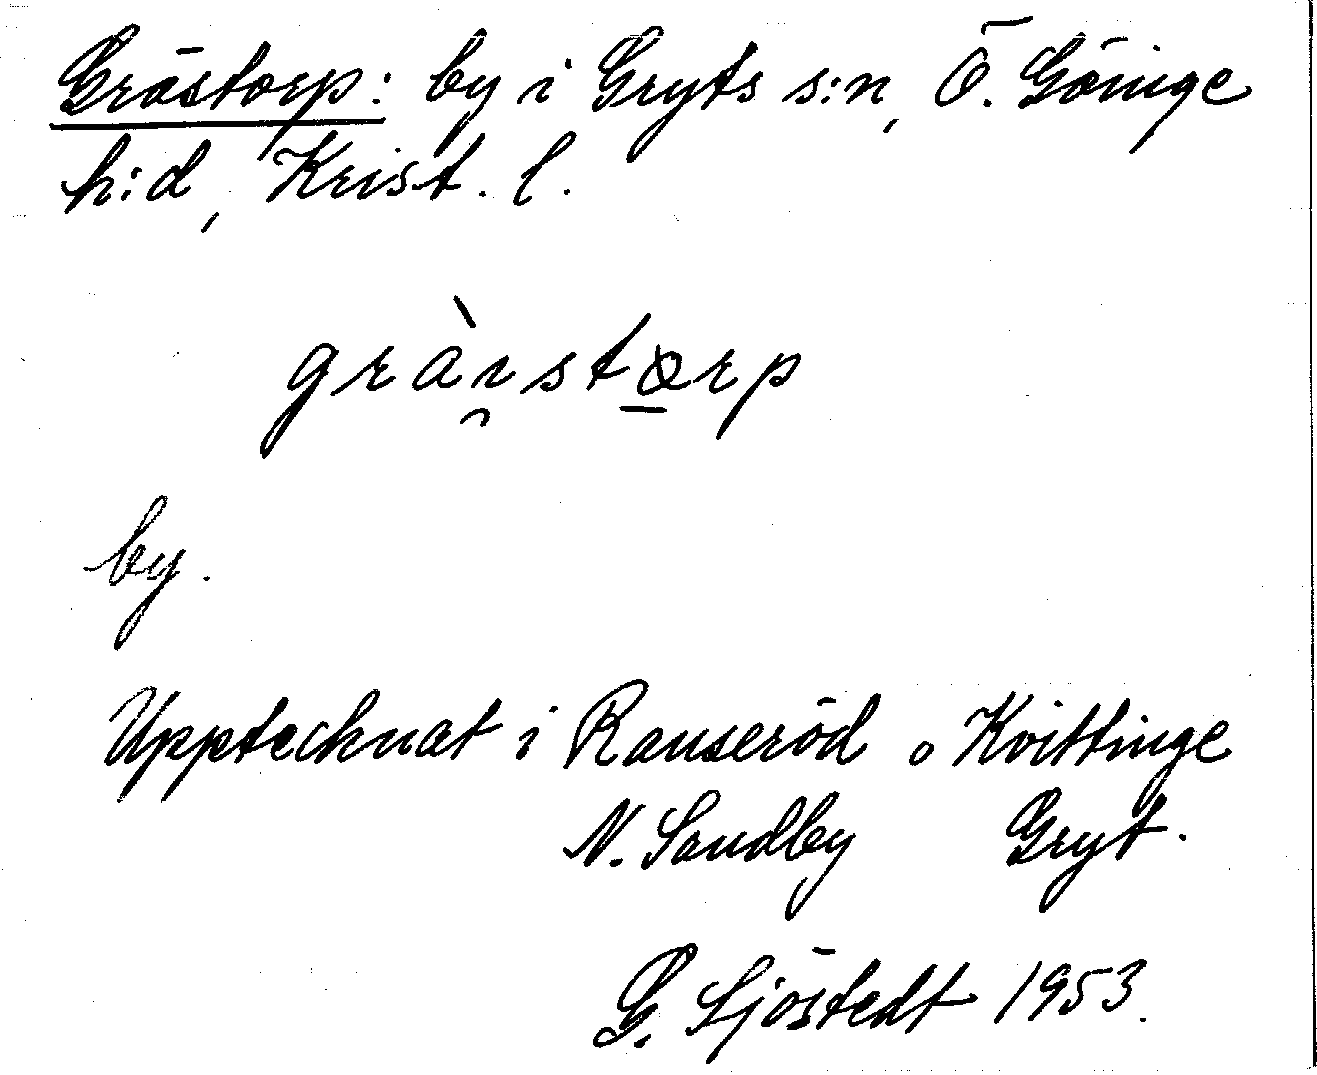 Gråstorp: by i Gryts s:n, Ö. Göinge
h:d, Krist. l.
gràı̯sto̲rp
by.
Upptecknat i Ranseröd o Kvittinge
N. Sandby Gryt.
G. Sjöstedt 1953.